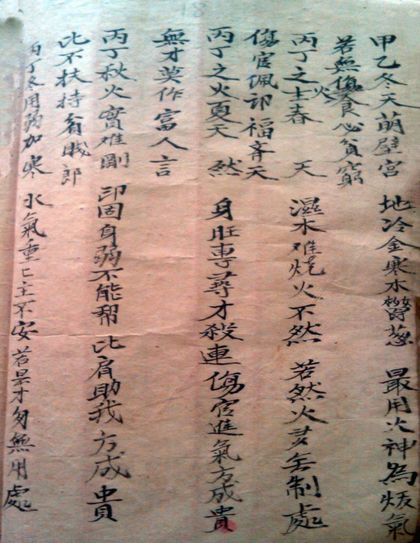 甲乙冬天萌壁宮 地冷金寒木鬱蔥 最用火神為炈氣
若無傷食必貧窮
丙丁之火春天 濕木难烧火不然 若然火多無制處
傷官佩印福齊天
丙丁之火夏天然 身旺專尋才殺連 傷官進氣方成貴
無才莫作富人言
丙丁秋火實难剛 印固身弱不能幫 比肩助我方成貴
比不扶持看賊郎
丙丁冬用弱加寒 水氣重已主不安 若是才多無用處